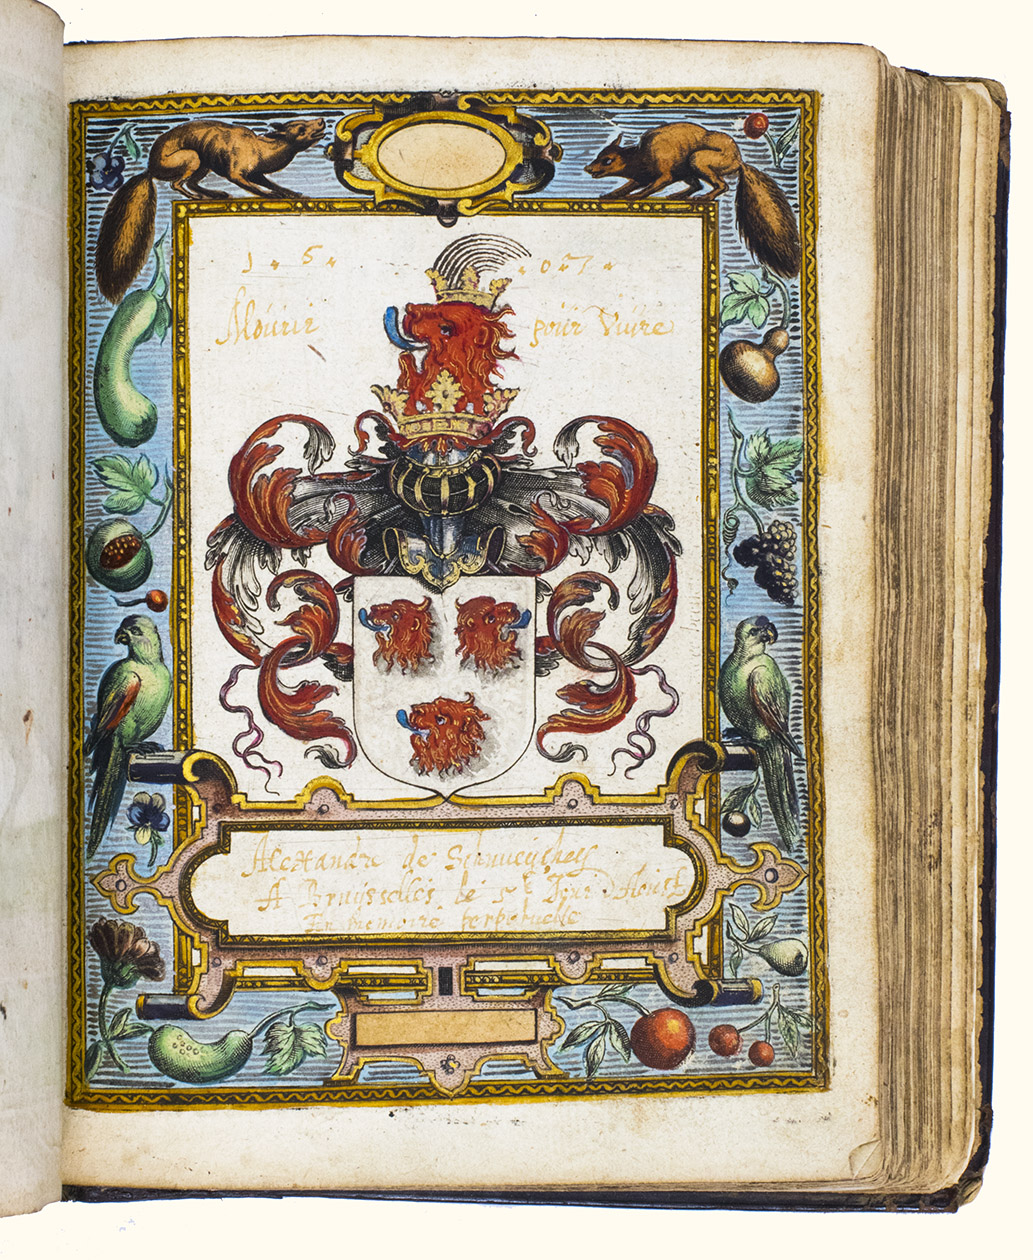 1 . 5 . . 0 . 7 .
Mourir pour Viure
Alexandre de Schuueychey
A Bruysselles le 5e Jour d'Aoust
En memoire perpetuelle